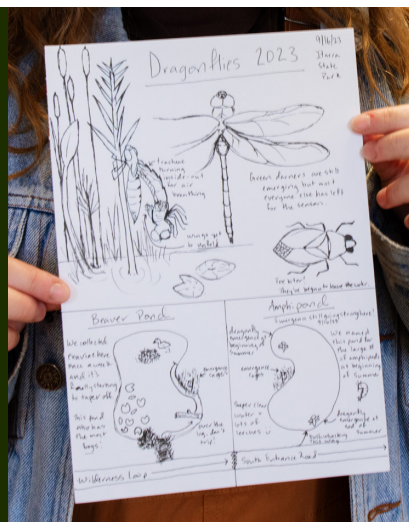 Dragonflies 2023
9/16/23
Itasca
State
Park
trachea
turning
inside-out
for air
breathing
wings yet
to unfold
Green darners are still
emerging but most
everyone else has left
for the season.
Toe biter!
They've begun to leave the water.
Beaver Pond
We collected
exuviae here
once a week
and it's
starting
to taper off.
This pond
also has
the most
bugs!
emergence
cages
over the
log, don't
trip!
Wilderness Loop
Amphipond
Emergence still going strong here!
dragonfly
emergence at
beginning of
summer
emergence
cages
Super clear
water +
lots of
leeches
We named
this pond for
the large #
of amphipods
at beginning
of summer
dragonfly
emergence at
end of
summer
South Entrance Road